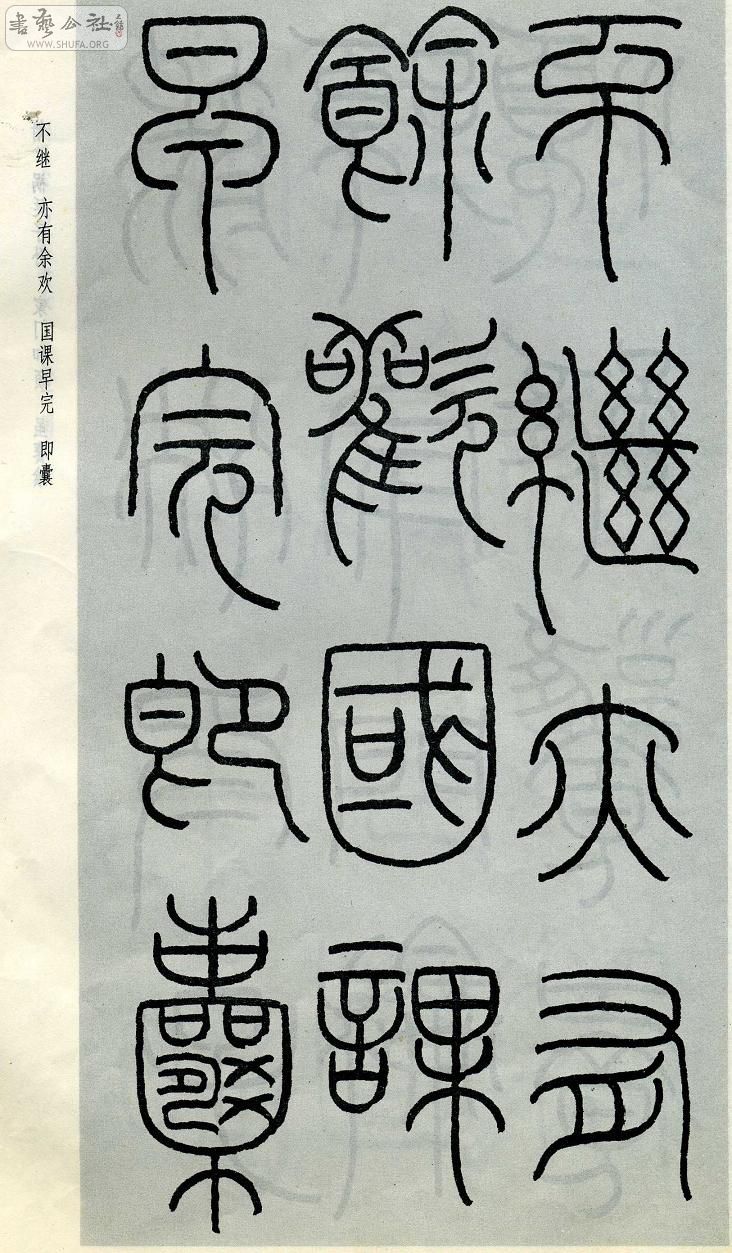 不繼亦有
餘歡國課
早完即囊
不继 亦有余欢 国课早完 即囊
書藝公社
WWW.SHUFA.ORG